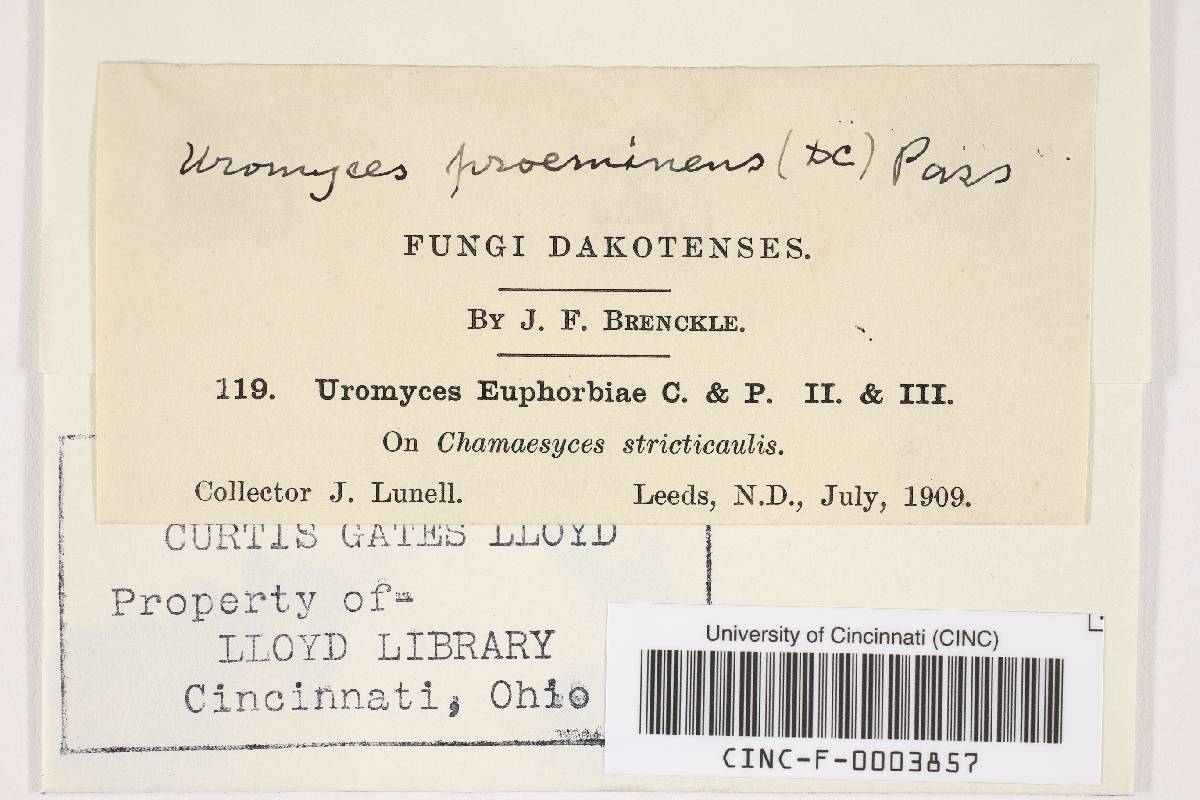 Uromyces proeminens (DC) Pass
FUNGI DAKOTENSES.
BY J. F. BRENCKLE.
119. Uromyces Euphorbiae C. & P. II. & III.
On Chamaesyces stricticaulis.
Collector J. Lunell. Leeds, N.D., July, 1909.
CURTIS GATES LLOYD
Property of-
LLOYD LIBRARY
Cincinnati, Ohio
University of Cincinnati (CINC)
CINC-F-0003857